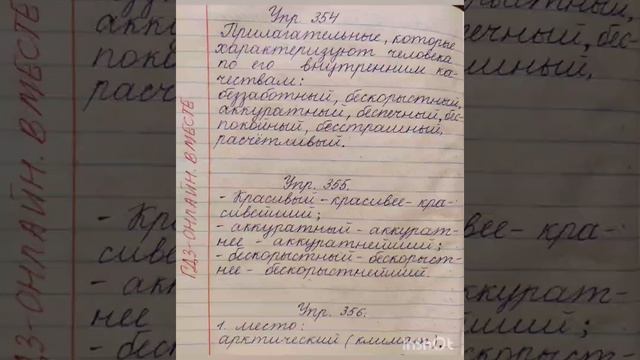 Упр 354
Прилагательные, которые
характеризуют человека
по его внутренним ка-
чествам:
беззаботный, бескорыстный,
аккуратный, беспечный, бес-
покойный, бесстрашный.
расчётливый.
Упр. 355.
- Красивый - красивее - кра-
сивейший;
- аккуратный - аккурат-
нее - аккуратнейший;
- бескорыстный - бескорыст-
нее - бескорыстнейший.
Упр. 356.
1. место:
арктический (климат),
ГДЗ-ОНЛАЙН. ВМЕСТЕ
InShot